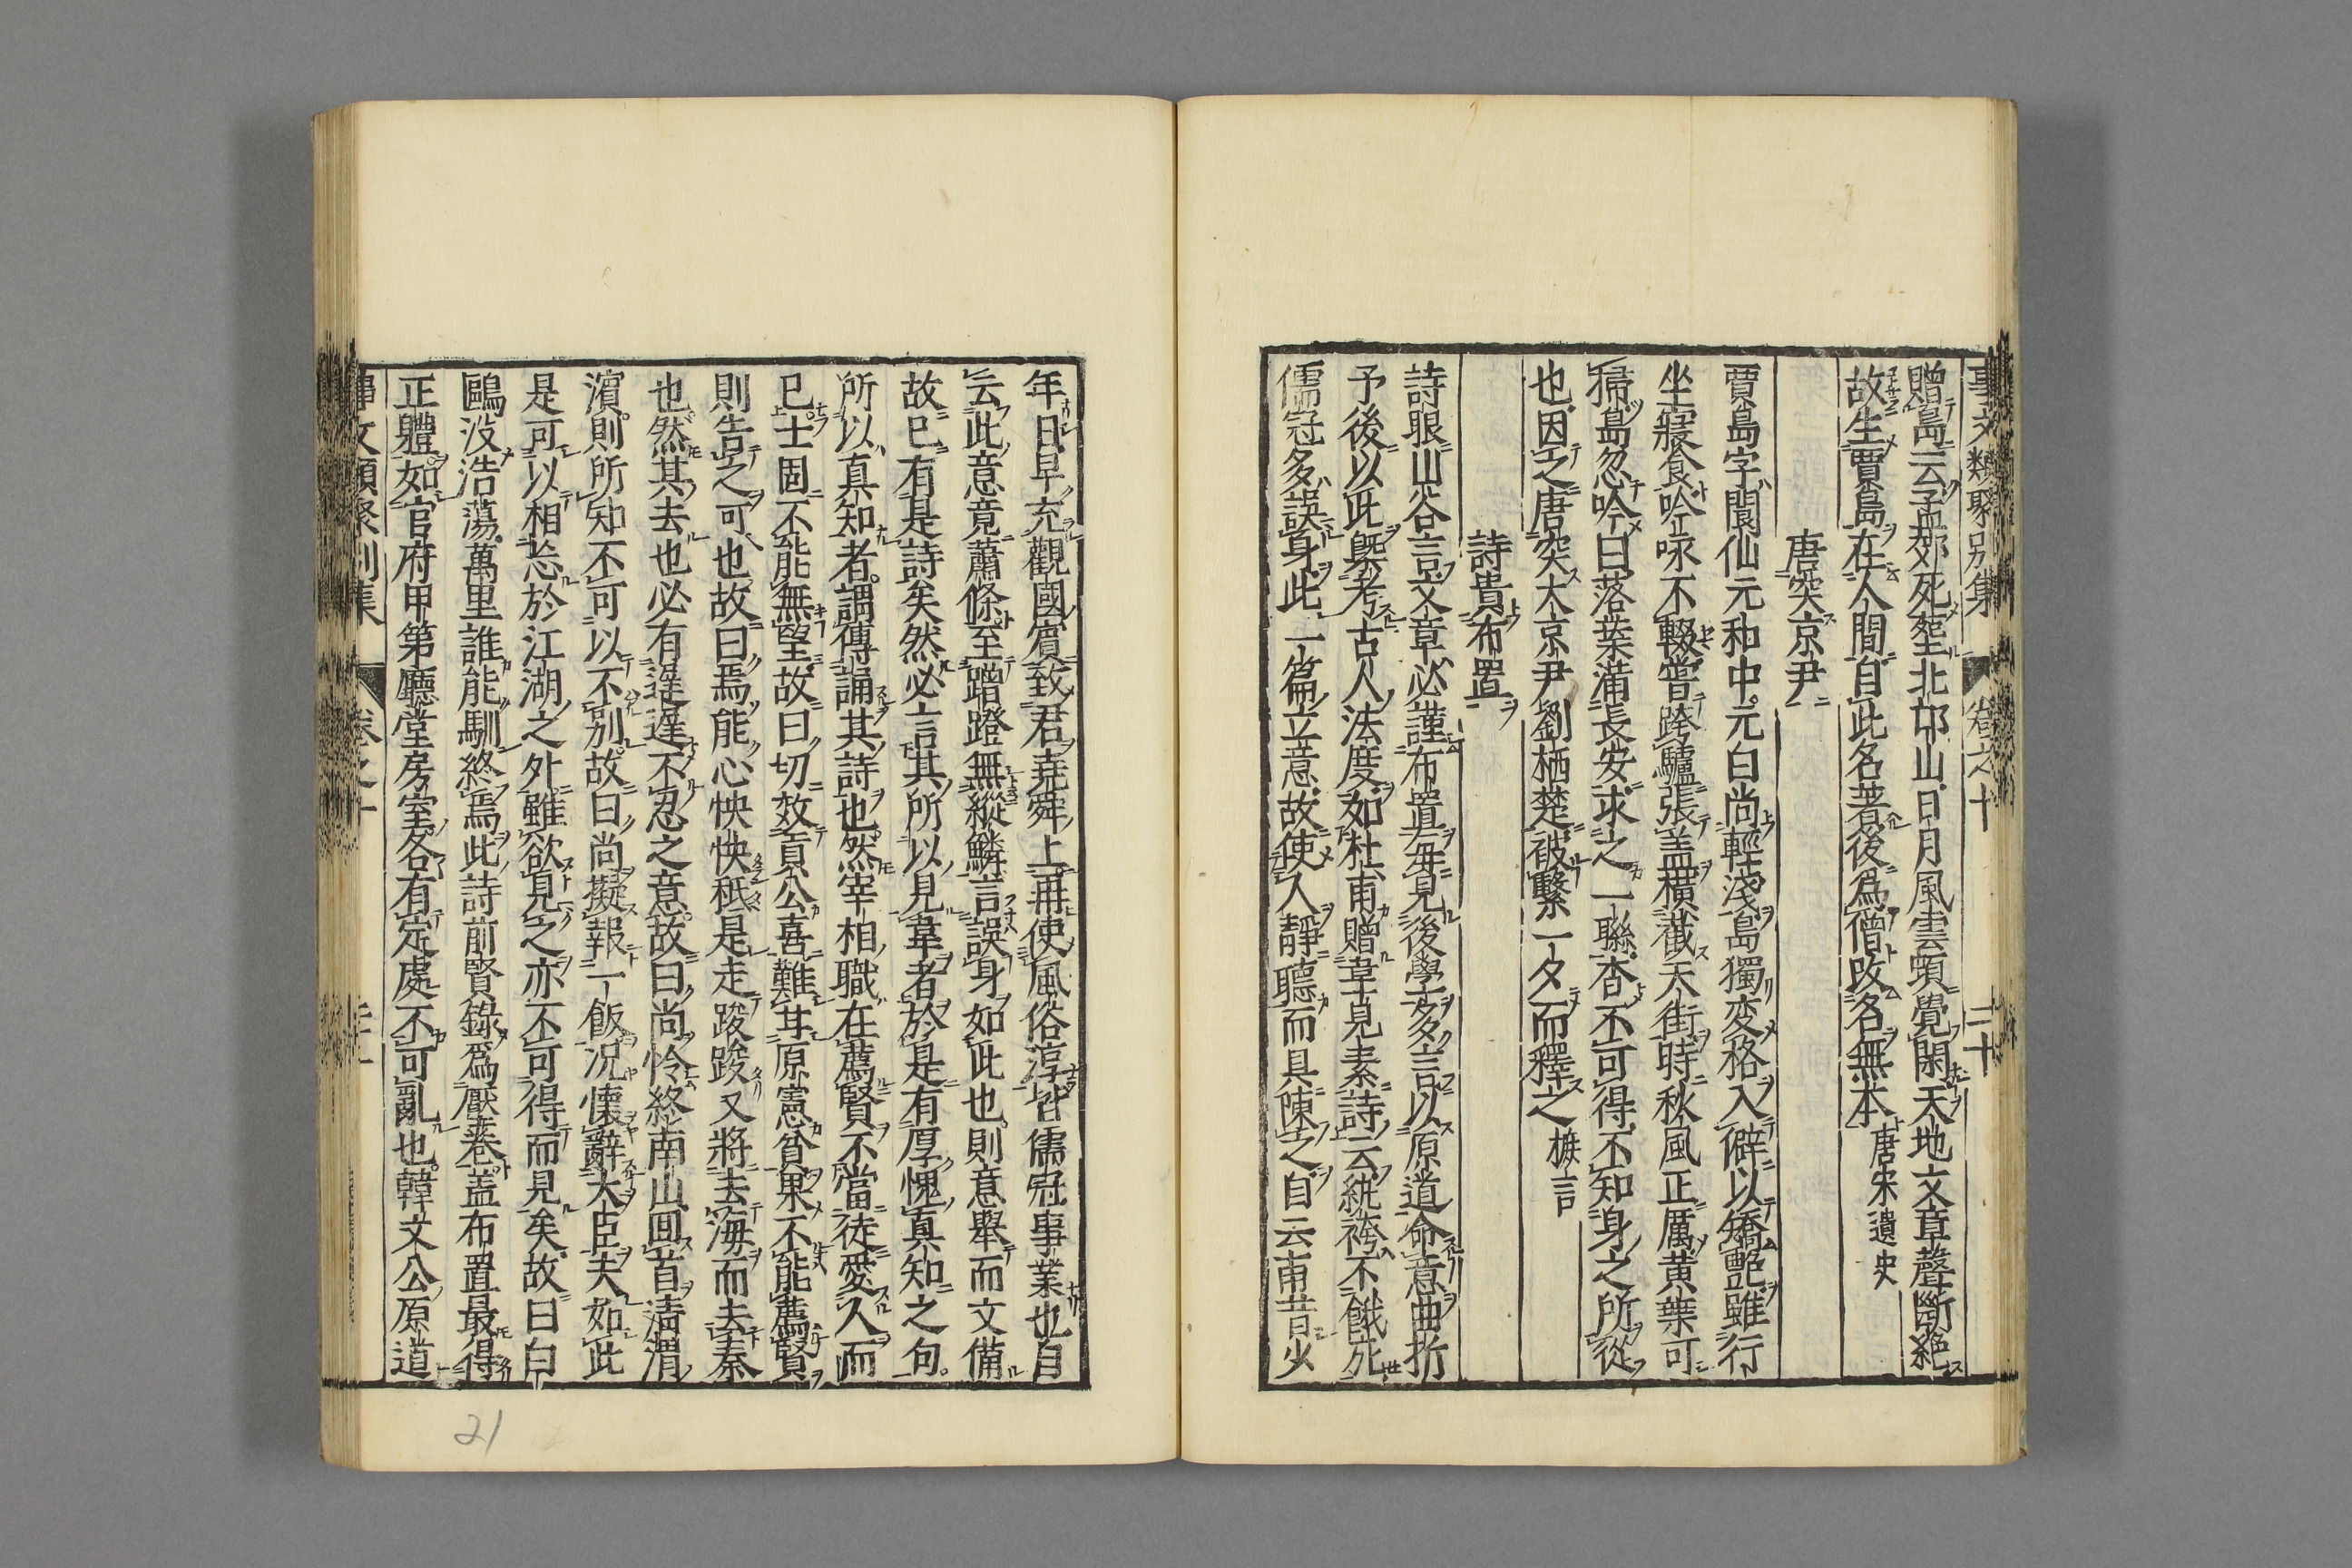 事文類聚別集 卷之十 二十
贈島云孟郊死塟北邙山日月風雲頓覺閑天地文章聲斷絶
故生賈島在人間自此名著後爲僧改名無本唐宋遺史
唐突京尹
賈島字閬仙元和中元白尚輕淺島獨変格入僻以矯艶雖行
坐寢食吟咏不輟嘗跨驢張盖橫截天街時秋風正厲黄葉可
掃島忽吟曰落葉滿長安求之一聯杳不可得不知身之所從
也因之唐突大京尹劉栖楚被繫一夕而釋之摭言
詩貴布置
詩眼山谷言文章必謹布置每見後學多言以原道命意曲折
予後以此槩考古人法度如杜甫贈韋見素詩云紈袴不餓死
儒冠多誤身此一篇立意故使人靜聽而具陳之自云甫昔少
年日早充觀國賔致君堯舜上再使風俗淳皆儒冠事業也自
云此意竟蕭條至蹭蹬無縱鱗言誤身如此也則意舉而文備
故已有是詩矣然必言其所以見韋者於是有厚愧真知之句
所以真知者謂傳誦其詩也然宰相職在薦賢不當徒愛人而
已士固不能無望故曰切效貢公喜難甘原憲貧果不能薦賢
則告之可也故曰焉能心怏怏秪是走踆踆又將去海而去秦
也然其去也必有遲遲不忍之意故曰尚怜終南山回首淸渭
濱則所知不可以不別故曰尚擬報一飯况懷辭大臣夫如此
是可以相忘於江湖之外雖欲見之亦不可得而見矣故曰白
鷗沒浩蕩萬里誰能馴終焉此詩前賢錄爲壓卷盖布置最得
正體如官府甲第廳堂房室各有定處不可亂也韓文公原道
事文類聚別集 卷之十
21